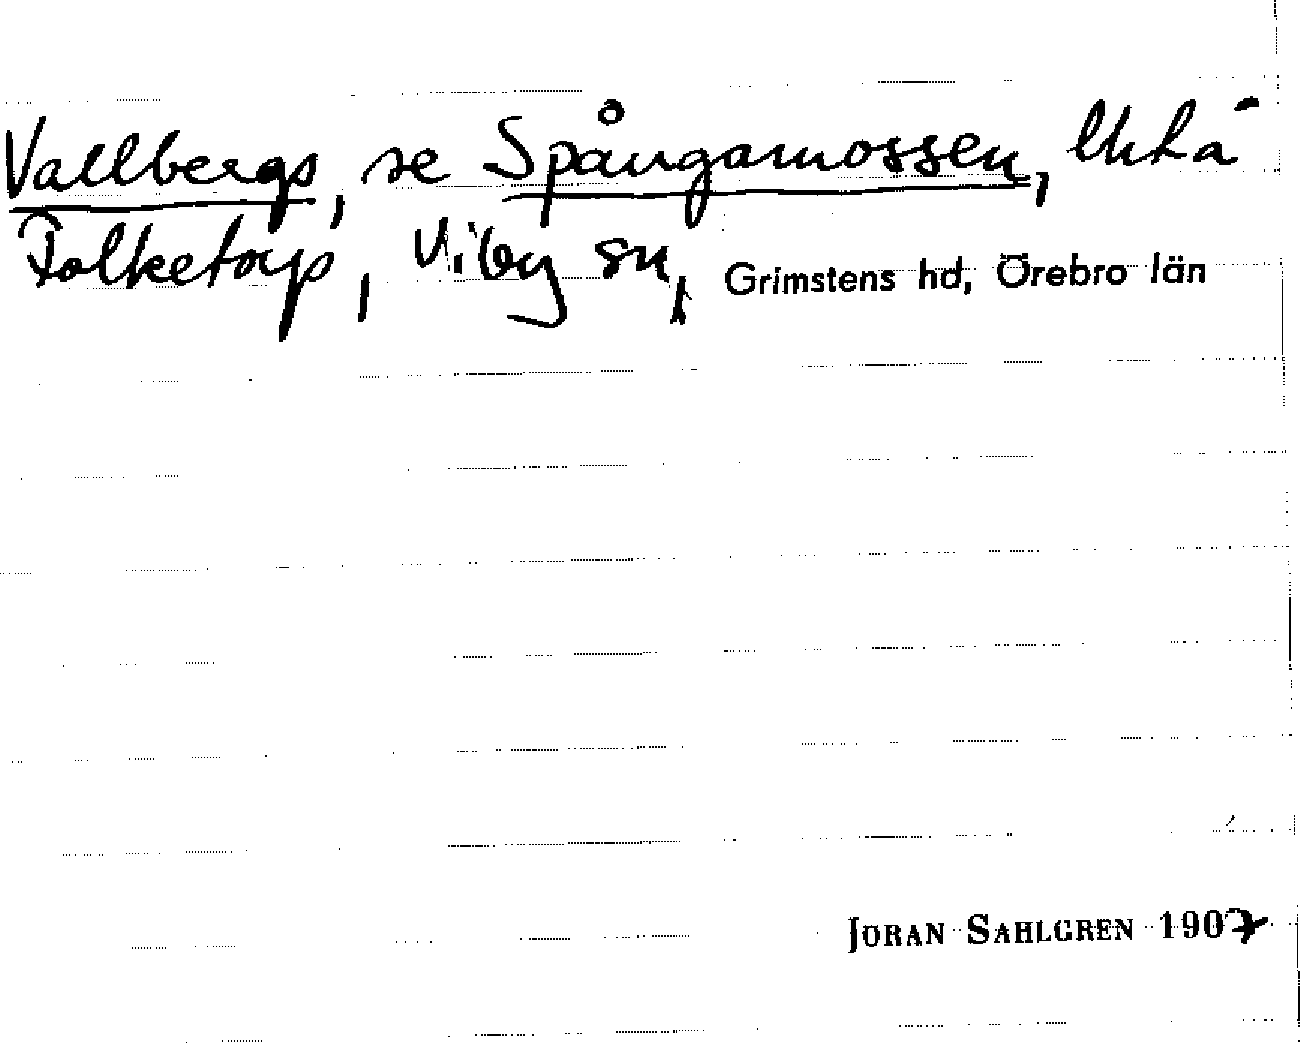 Vallbergs, se Spångamossen, lht å
Folketorp, Viby sn, Grimstens hd, Örebro län
JÖRAN SAHLGREN 1907